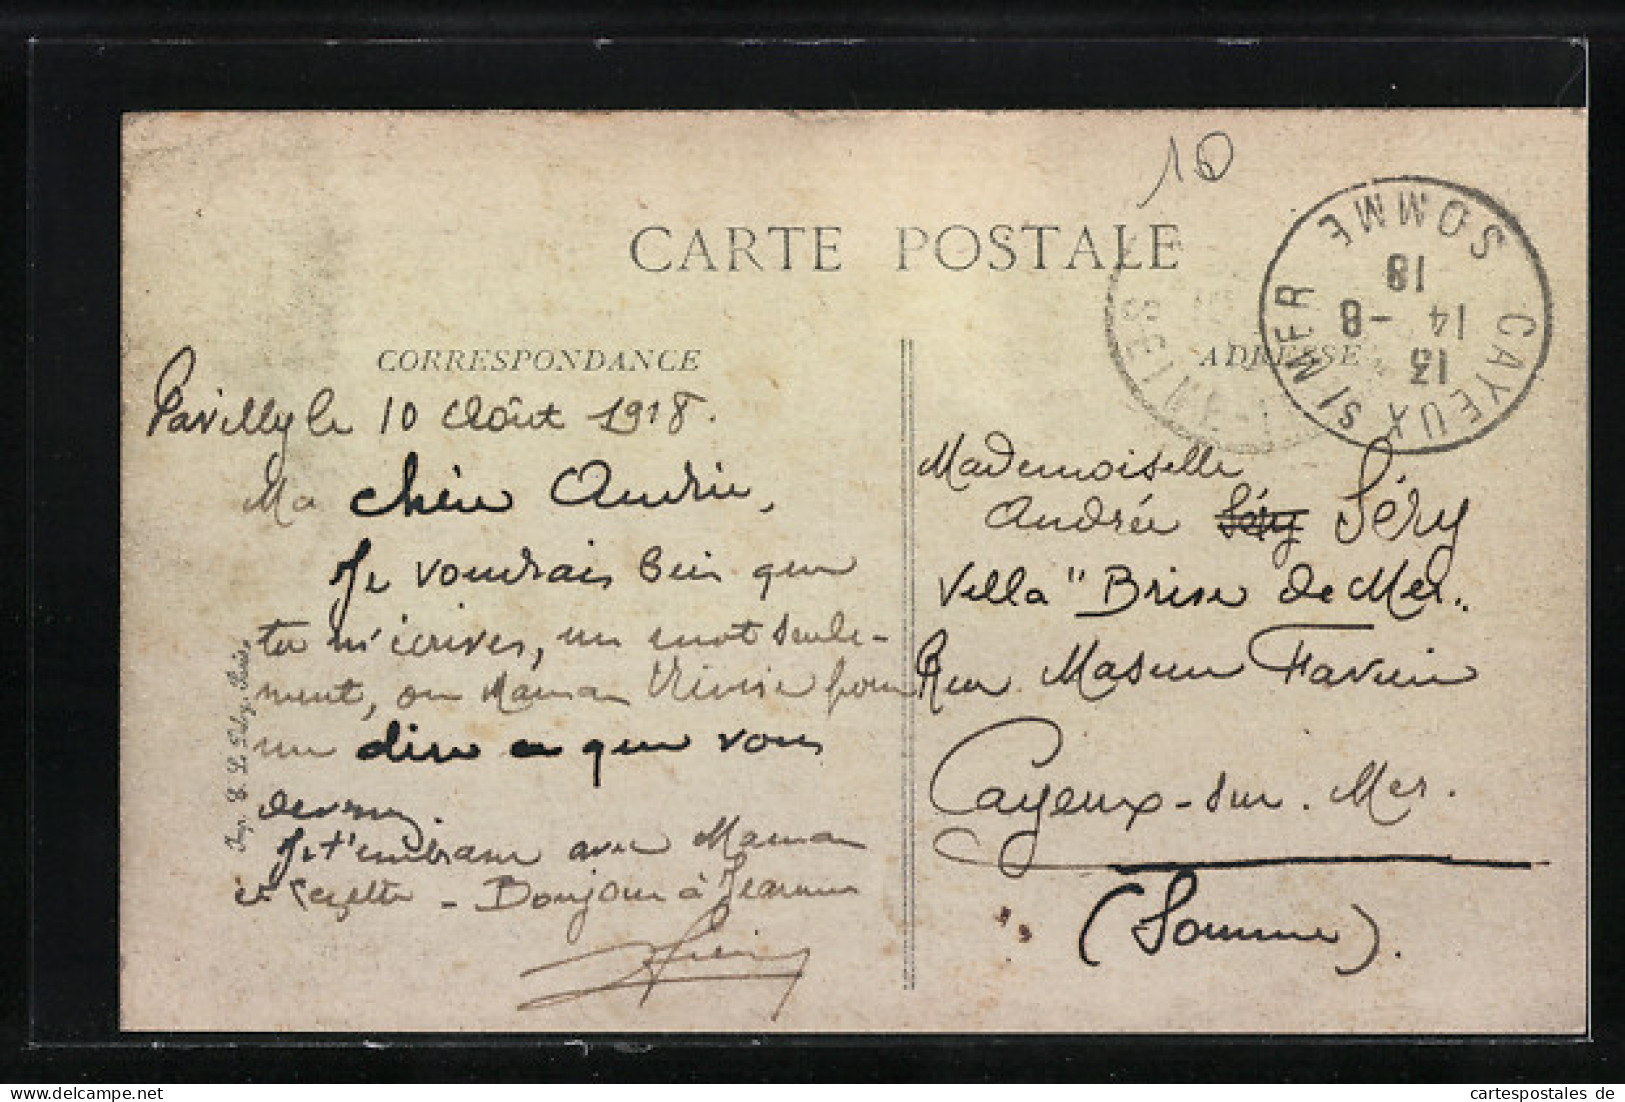 10
CARTE POSTALE
CORRESPONDANCE
ADRESSE
CAYEUX S/ MER
SOMME
13
14 - 8
18
SEINE
Pavilly le 10 Août 1918.
Ma chère Andrée,
Je voudrais bien que
tu m'écrives, un mot seule-
ment, ou Maman pour
me dire ce que vous
devenez.
Je t'embrasse avec Maman
et - Bonjour à Jeanne
Mademoiselle
Andrée Séry Séry
Villa "Brise de Mer"
Rue Masson
Cayeux-sur-Mer.
(Somme).
Imp. E. Le Deley, Paris.
cartespostales de